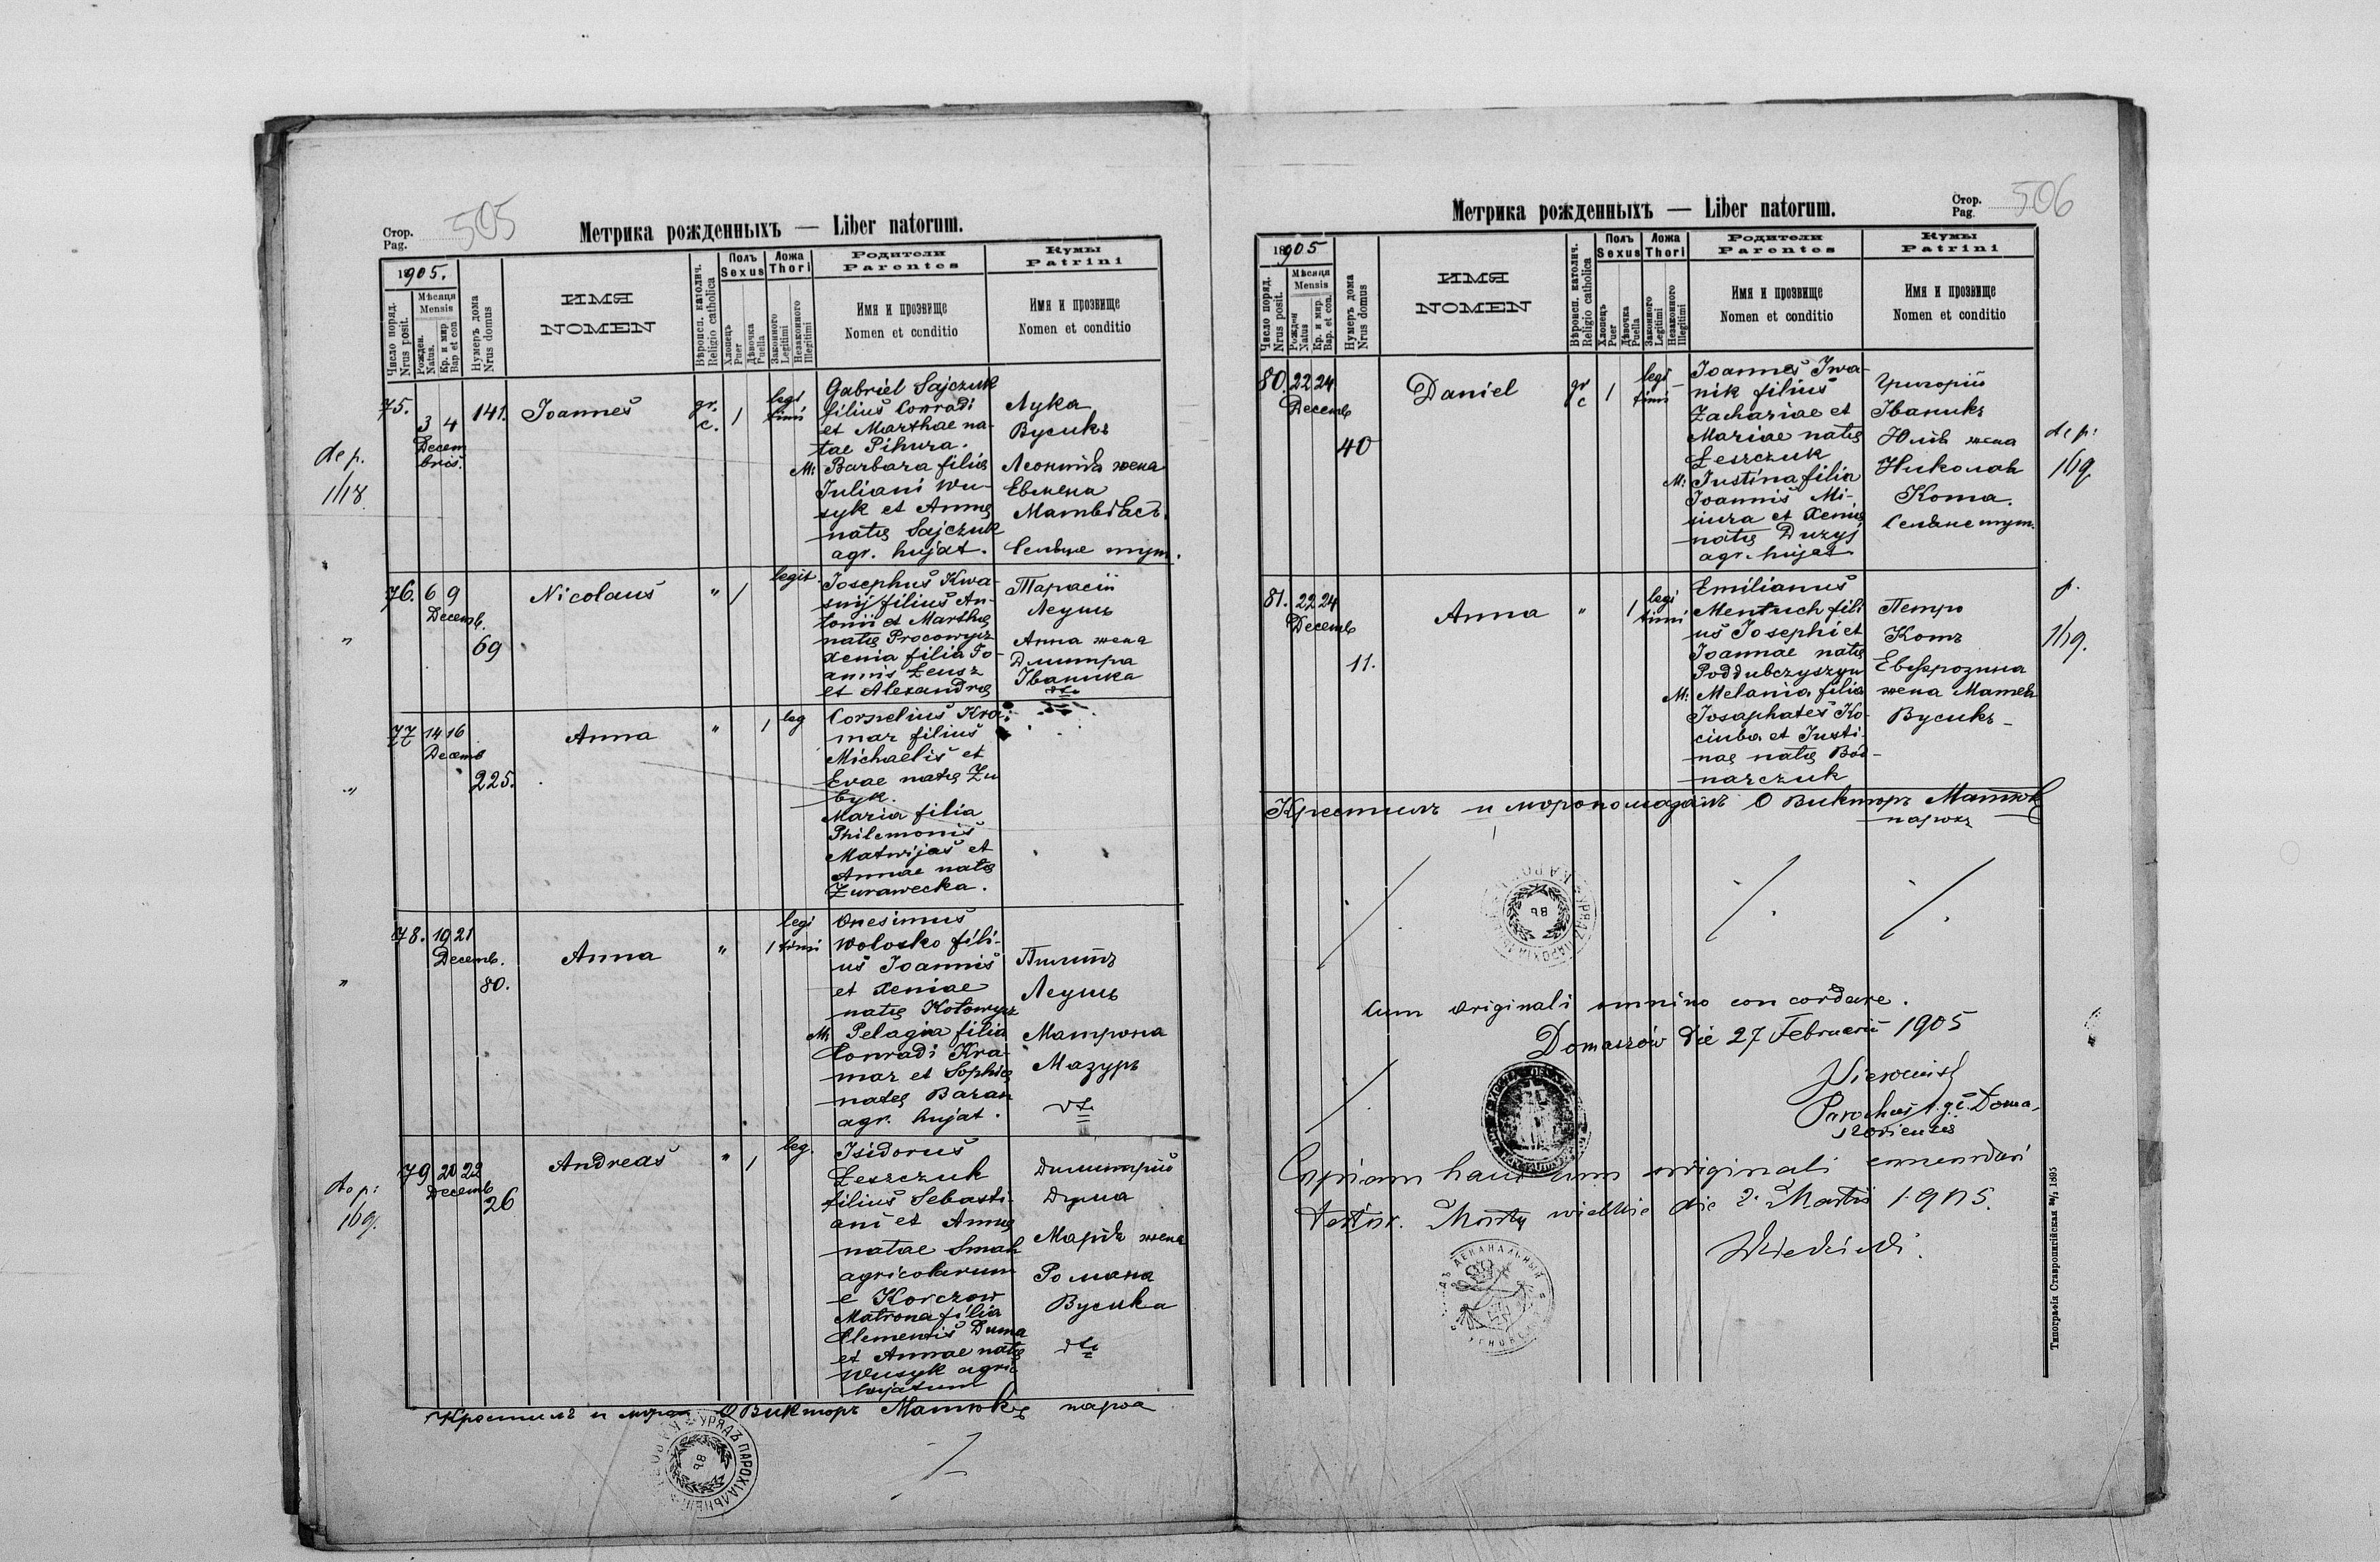 Стор.
Pag.
505
Метрика рожденныхъ — Liber natorum.
1905.
Число поряд.
Nrus posit.
Мѣсяця
Mensis
Рожден.
Natus.
Кр. и мир
Bap et con
Нумеръ дома
Nrus domus
ИМЯ
NOMEN
Вѣроисп. католич.
Religio catholica
Полъ
Sexus
Хлопецъ
Puer
Дѣвочка
Puella
Ложа
Thori
Законного
Legitimi
Незаконного
Illegitimi
Родители
Parentes
Имя и прозвище
Nomen et conditio
Кумы
Patrini
Имя и прозвище
Nomen et conditio
de p.
1/18
75. 3 4 141. Joannes gr. c. 1 legi
timi
Decem
bris.
Gabriel Sajczuk
filius Conradi
et Marthae na-
tae Pihura.
M: Barbara filia
Juliani Wu-
syk et Annę
natę Sajczuk
agr. hujat.
Лука
Вусикъ
Леонтія жена
Евмена
Матвіасъ.
Селяне тут.
"
76. 6 9 Nicolaus " 1 legit.
Decemb.
69
Josephus Kwa-
snij filius An-
tonii et Marthę
natę Procowycz
Xenia filia Jo-
annis Leusz
et Alexandrę
Тарасій
Леушъ
Анна жена
Дмитра
Іваника
dto
"
77 14 16 Anna " 1 leg
Decemb
225.
Cornelius Kra-
mar filius
Michaelis et
Evae natę Zu
byk.
Maria filia
Philemonis
Matwijas et
Annae natę
Zurawecka.
"
78. 19 21 Anna " 1 legi
timi
Decemb.
80.
Onesimus
Woloszko fili-
us Joannis
et Xeniae
natę Kotowycz
M. Pelagia filia
Conradi Kra-
mar et Sophię
natę Baran
agr. hujat.
Пилипъ
Леушъ
Матрона
Мазуръ
dto
de p:
1/9.
79 20 23 Andreas " 1 leg.
Decemb
26
Isidorus
Leszczuk
filius Sebasti-
ani et Annę
natae Smah
agricolarum
e Korczow
Matrona filia
Clementis Duma
et Annae natę
Wusyk agric
hujatum
Димитрій
Дума
Марія жена
Романа
Вусика
dto
Крестилъ и миропо О Викторъ Матюкъ
УРЯДЪ ПАРОХІАЛЬНЫЙ
Стор.
Pag.
506
Метрика рожденныхъ — Liber natorum.
1905
Число поряд.
Nrus posit.
Мѣсяця
Mensis
Рожден
Natus
Кр. и мир.
Bap. et con.
Нумеръ дома
Nrus domus
ИМЯ
NOMEN
Вѣроисп. католич.
Religio catholica
Полъ
Sexus
Хлопецъ
Puer
Дѣвочка
Puella
Ложа
Thori
Законного
Legitimi
Незаконного
Illegitimi
Родители
Parentes
Имя и прозвище
Nomen et conditio
Кумы
Patrini
Имя и прозвище
Nomen et conditio
80. 22 24 Daniel gr c 1 legi
timi
Decemb
40
Joannes Iwa-
nik filius
Zachariae et
Mariae natę
Leszczuk
M: Justina filia
Joannis Mi-
siura et Xenię
natę Duzyj
agr. hujat
Григорій
Іваникъ
Юлія жена
Николая
Кота.
Селяне тут.
de p:
1/9.
81. 22 24 Anna " 1 legi
timi
Decemb
11.
Emilianus
Mentuch fili
us Josephi et
Joannae natę
Poddubczyszyn
M: Melania filia
Josaphates Ko-
ciuba et Justi-
nae natę Bod-
narczuk
Петро
Котъ
Евфрозина
жена Матея
Вусикъ
p.
1/9.
Крестилъ и миропомазалъ О Викторъ Матюкъ
парохъ
Cum originali omnino concordare.
Domaszów die 27 Februarii 1905
Parochus r. gr. c. Doma-
szoviensis
Copiam hanc cum originali
testor. Mosty wielkie die 2. Martii 1905.
ДЕКАНАЛЬНЫЙ
Типографія Ставропигійская 1895